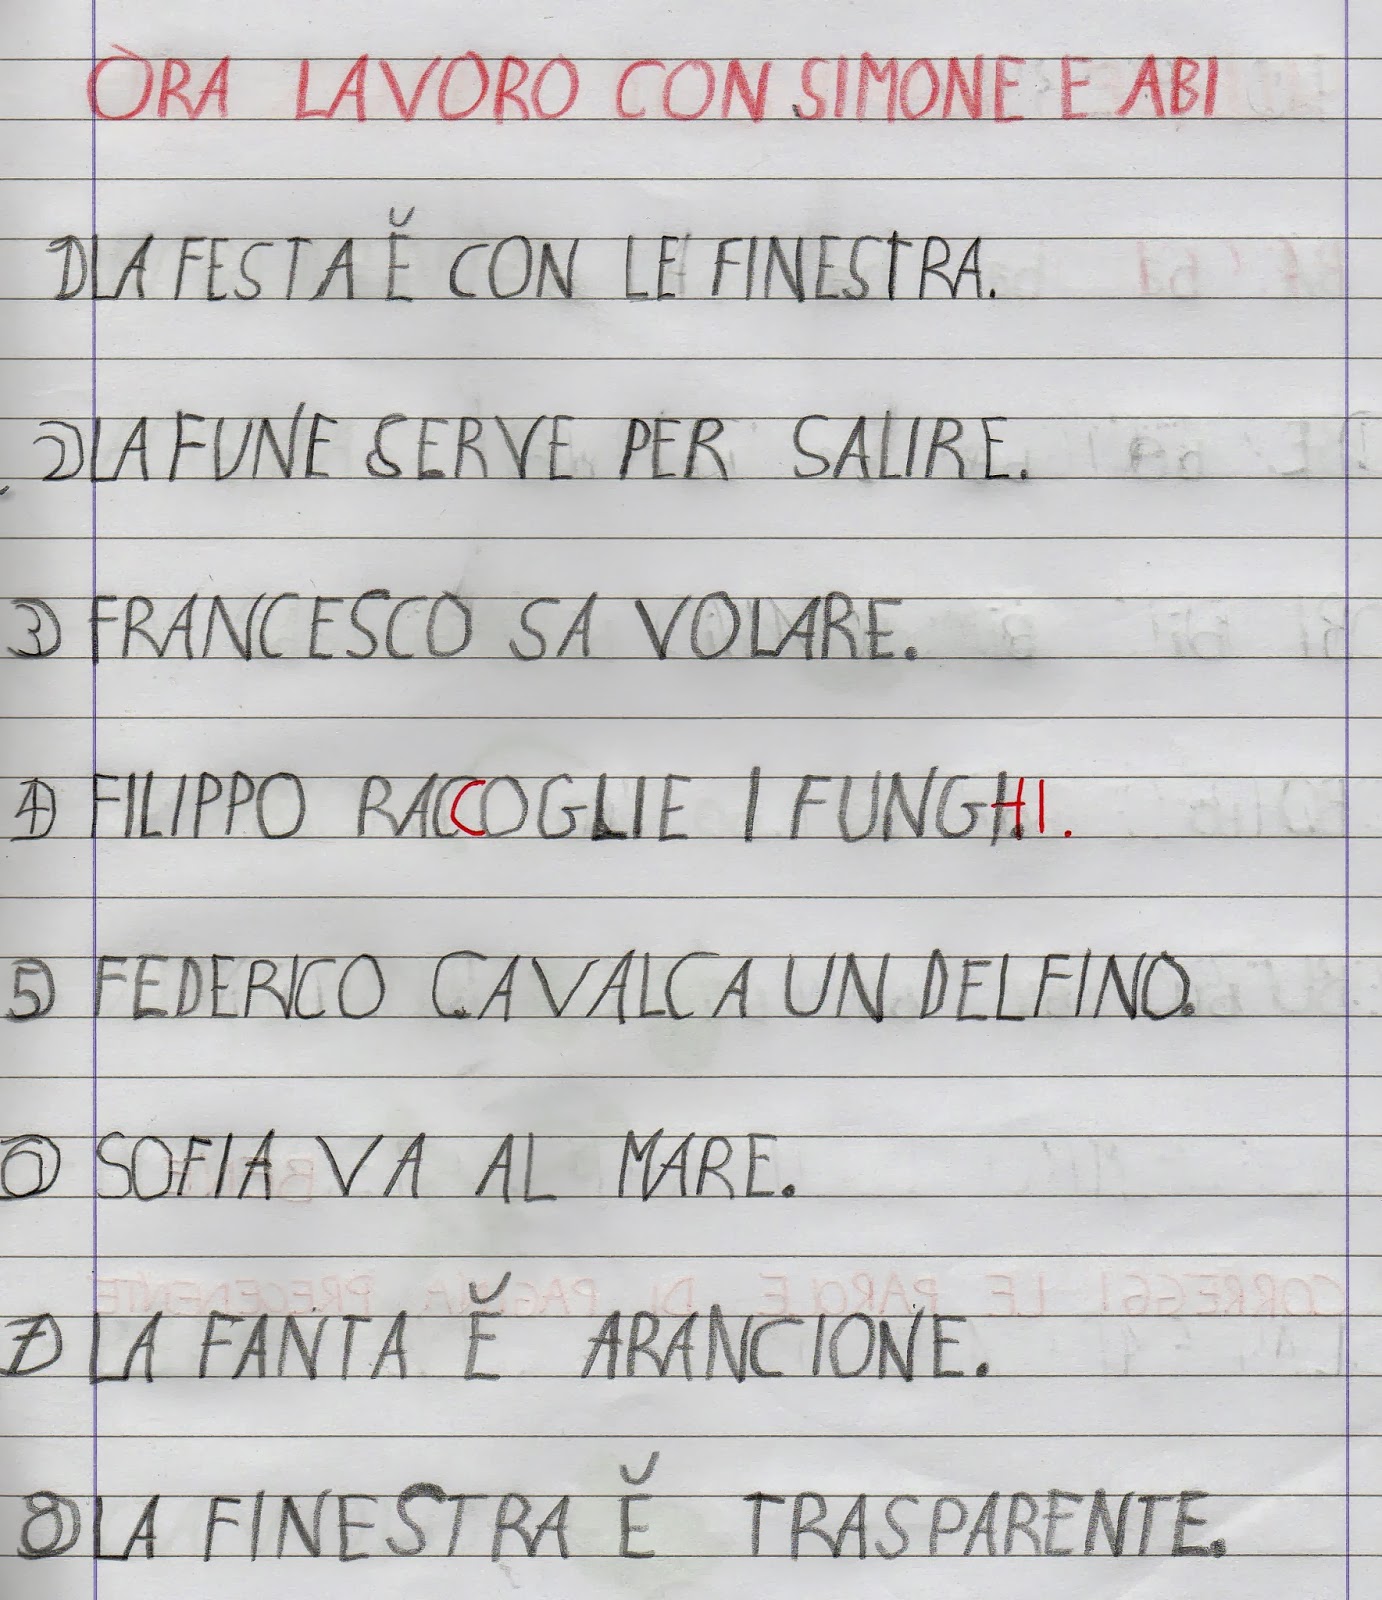 ORA LAVORO CON SIMONE E ABI
1) LA FESTA Ĕ CON LE FINESTRA.
2) LA FUNE SERVE PER SALIRE.
3) FRANCESCO SA VOLARE.
4) FILIPPO RACCOGLIE I FUNGHI.
5) FEDERICO CAVALCA UN DELFINO.
6) SOFIA VA AL MARE.
7) LA FANTA Ĕ ARANCIONE.
8) LA FINESTRA Ĕ TRASPARENTE.